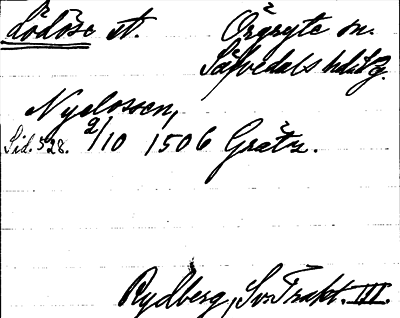 Lödöse st. Örgryte sn.
Säfvedals hd
Nyelossen,
Sid. 528. 2/10 1506 Grätz.
Rydberg, Sv. Trakt. III.